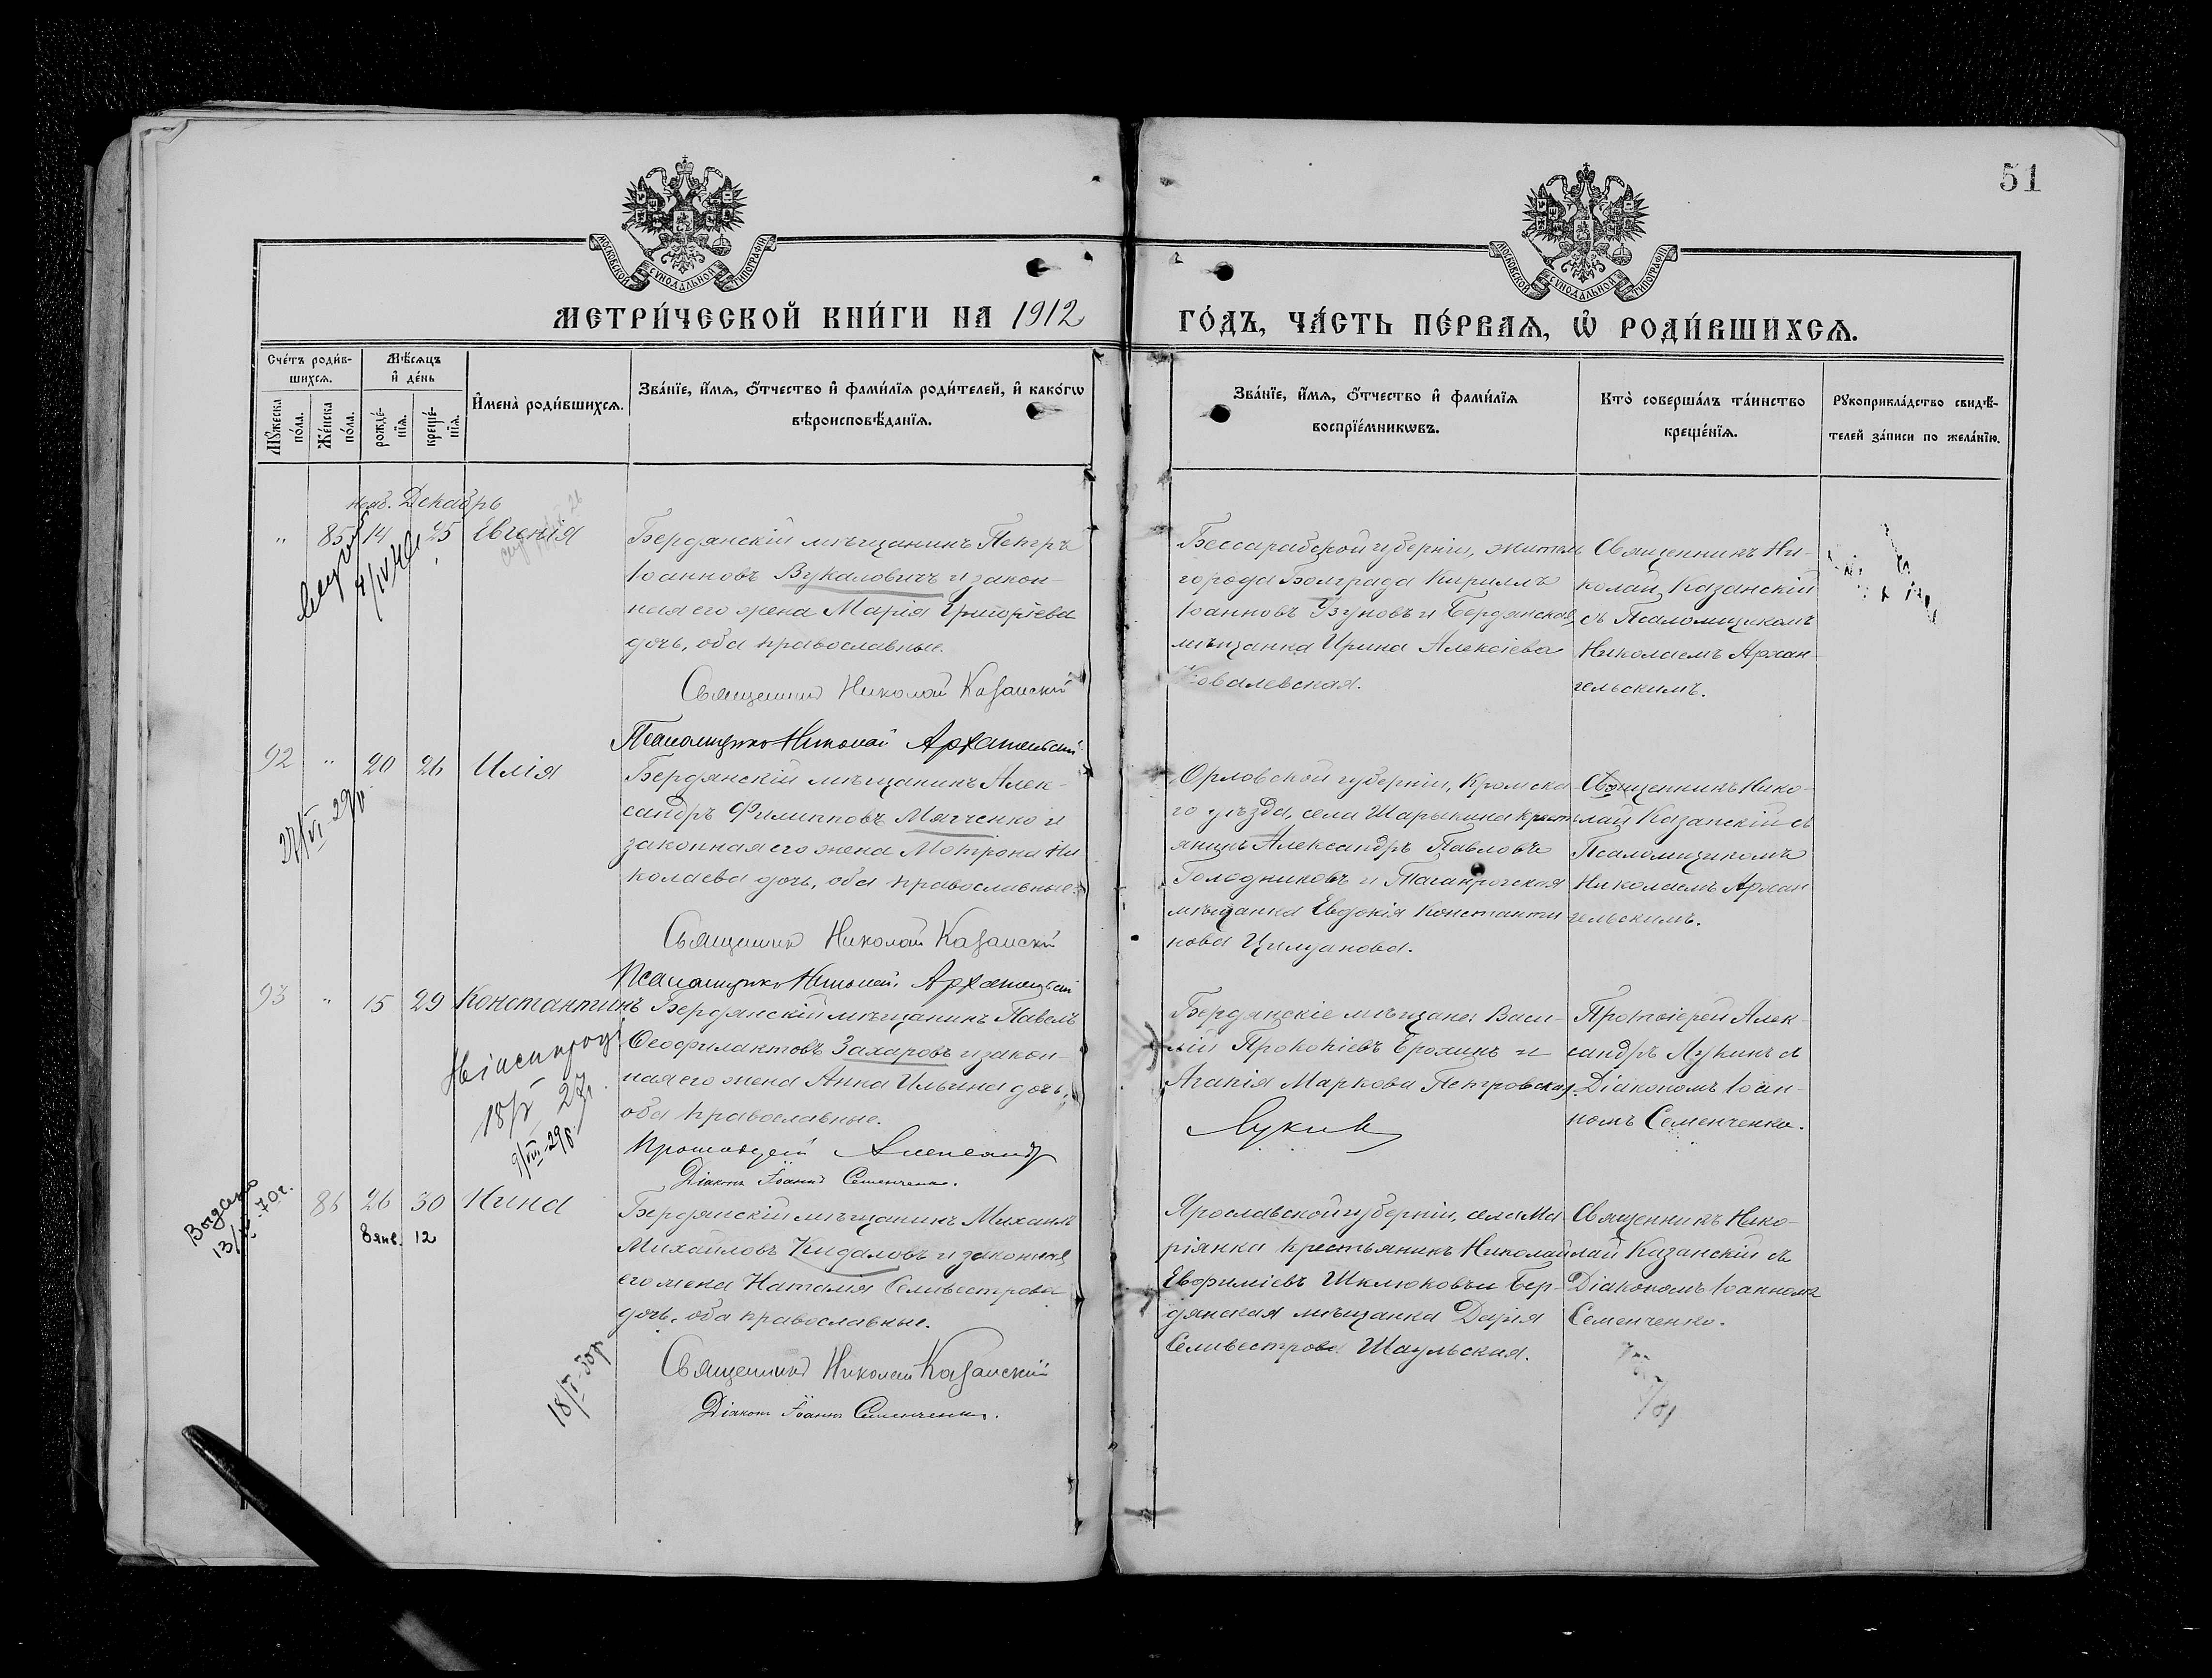 51
МОСКОВСКОЙ СѴНОДАЛЬНОЙ ТИПОГРАФІИ
МОСКОВСКОЙ СѴНОДАЛЬНОЙ ТИПОГРАФІИ
МЕТРИ́ЧЕСКОЙ КНИ́ГИ НА 1912
ГО́ДЪ, ЧА́СТЬ ПЕ́РВАѦ, Ѡ҆ РОДИ́ВШИХСѦ.
Сче́тъ роди́в-
шихсѧ.
Мꙋ́жеска по́ла.
Же́нска по́ла.
Мѣ́сѧцъ
и҆ де́нь
рожде́-
нїѧ.
креще́-
нїѧ.
И҆мена̀ роди́вшихсѧ.
Зва́нїе, и҆́мѧ, ѻ҆́тчество и҆ фами́лїѧ роди́телей, и҆ како́гѡ
вѣроисповѣ́данїѧ.
Зва́нїе, и҆́мѧ, ѻ҆́тчество и҆ фами́лїѧ
воспрїе́мникѡвъ.
Кто̀ соверша́лъ та́инство
креще́нїѧ.
Рꙋкоприкла́дство свидѣ́-
телей за́писи по жела́нїю.
Нояб. Декабрь
" 85 14 25 Евгенія
Бердянскій мѣщанинъ Петръ
Іоанновъ Вукаловичъ и закон-
ная его жена Марія Григоріева
дочь, оба православные.
Священникъ Николай Казанскій
Псаломщикъ Николай Архангельскій
Бессарабской губерніи, житель
города Болграда Кириллъ
Іоанновъ Узуновъ и Бердянская
мѣщанка Ирина Алексіева
Ковалевская.
Священникъ Ни-
колай Казанскій
съ Псаломщикомъ
Николаемъ Архан-
гельскимъ.
92 " 20 26 Илія
27/VI 29г.
Бердянскій мѣщанинъ Алек-
сандръ Филипповъ Мятченко и
законная его жена Мотрона Ни-
колаева дочь, оба православные.
Священникъ Николай Казанскій
Псаломщикъ Николай Архангельскій
Орловской губерніи, Кромска-
го уѣзда, села Шарыкина кресть-
янинъ Александръ Павловъ
Голодниковъ и Таганрогская
мѣщанка Евдокія Константи-
нова
Священникъ Нико-
лай Казанскій съ
Псаломщикомъ
Николаемъ Архан-
гельскимъ.
93 " 15 29 Константинъ
18/V 27г.
9/VIII-29г.
Бердянскій мѣщанинъ Павелъ
Ѳеофилактовъ Захаровъ и закон-
ная его жена Анна Ильина дочь,
оба православные.
Протоіерей Александръ
Лукинъ
Діаконъ Іоаннъ Семенченко.
Бердянскіе мѣщане: Васи-
лій Прокопіевъ Ерохинъ и
Агапія Маркова Петровская.
Протоіерей Алек-
сандръ Лукинъ съ
Діакономъ Іоан-
номъ Семенченко.
Выдано
13/ -70г.
86 26 30 Нина
8 янв. 12
18/V-30г.
Бердянскій мѣщанинъ Михаилъ
Михайловъ Кидаловъ и законная
его жена Наталія Селивестрова
дочь, оба православные.
Священникъ Николай Казанскій
Діаконъ Іоаннъ Семенченко.
Ярославской губерніи, села Ма-
ріянка крестьянинъ Николай
Евфиміевъ Шклюковъ и Бер-
дянская мѣщанка Дарія
Селивестрова Шаульская.
Священникъ Нико-
лай Казанскій съ
Діакономъ Іоанномъ
Семенченко.